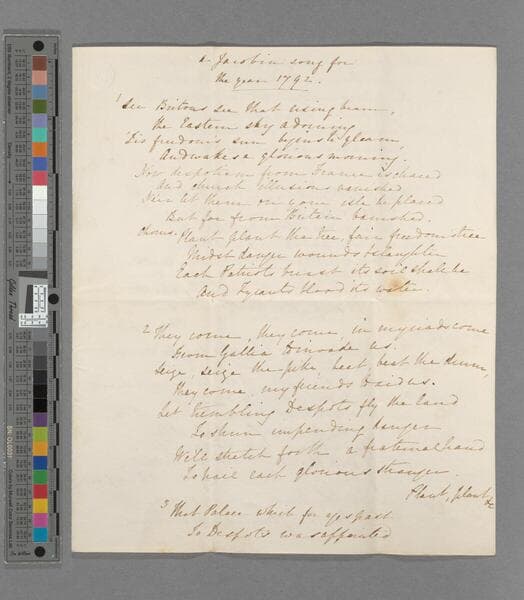 a Jacobin song for
the year 1792.
1 See Britons see that rising beam,
the Eastern sky adorning
'Tis freedom's sun begins to gleam,
And wakes a glorious morning.
Now despotism from France is chased
And church illusions vanished
Ne'er let them on your isle be placed
But far from Britain banished.
Chorus. Plant plant the tree, fair freedom's tree
Midst danger wounds & slaughter
Each Patriots breast its soil shall be
And Tyrants blood its water.
2 They come, they come, in myriads come
From Gallia to invade us.
Seize, seize the pike, beat beat the drum,
They come, my friends to aid us.
Let trembling Despots fly the land
To shun impending danger
We'll stretch forth a fraternal hand
To hail each glorious stranger.
Plant, plant &c
3 That Palace which for ages past
To Despots was appointed